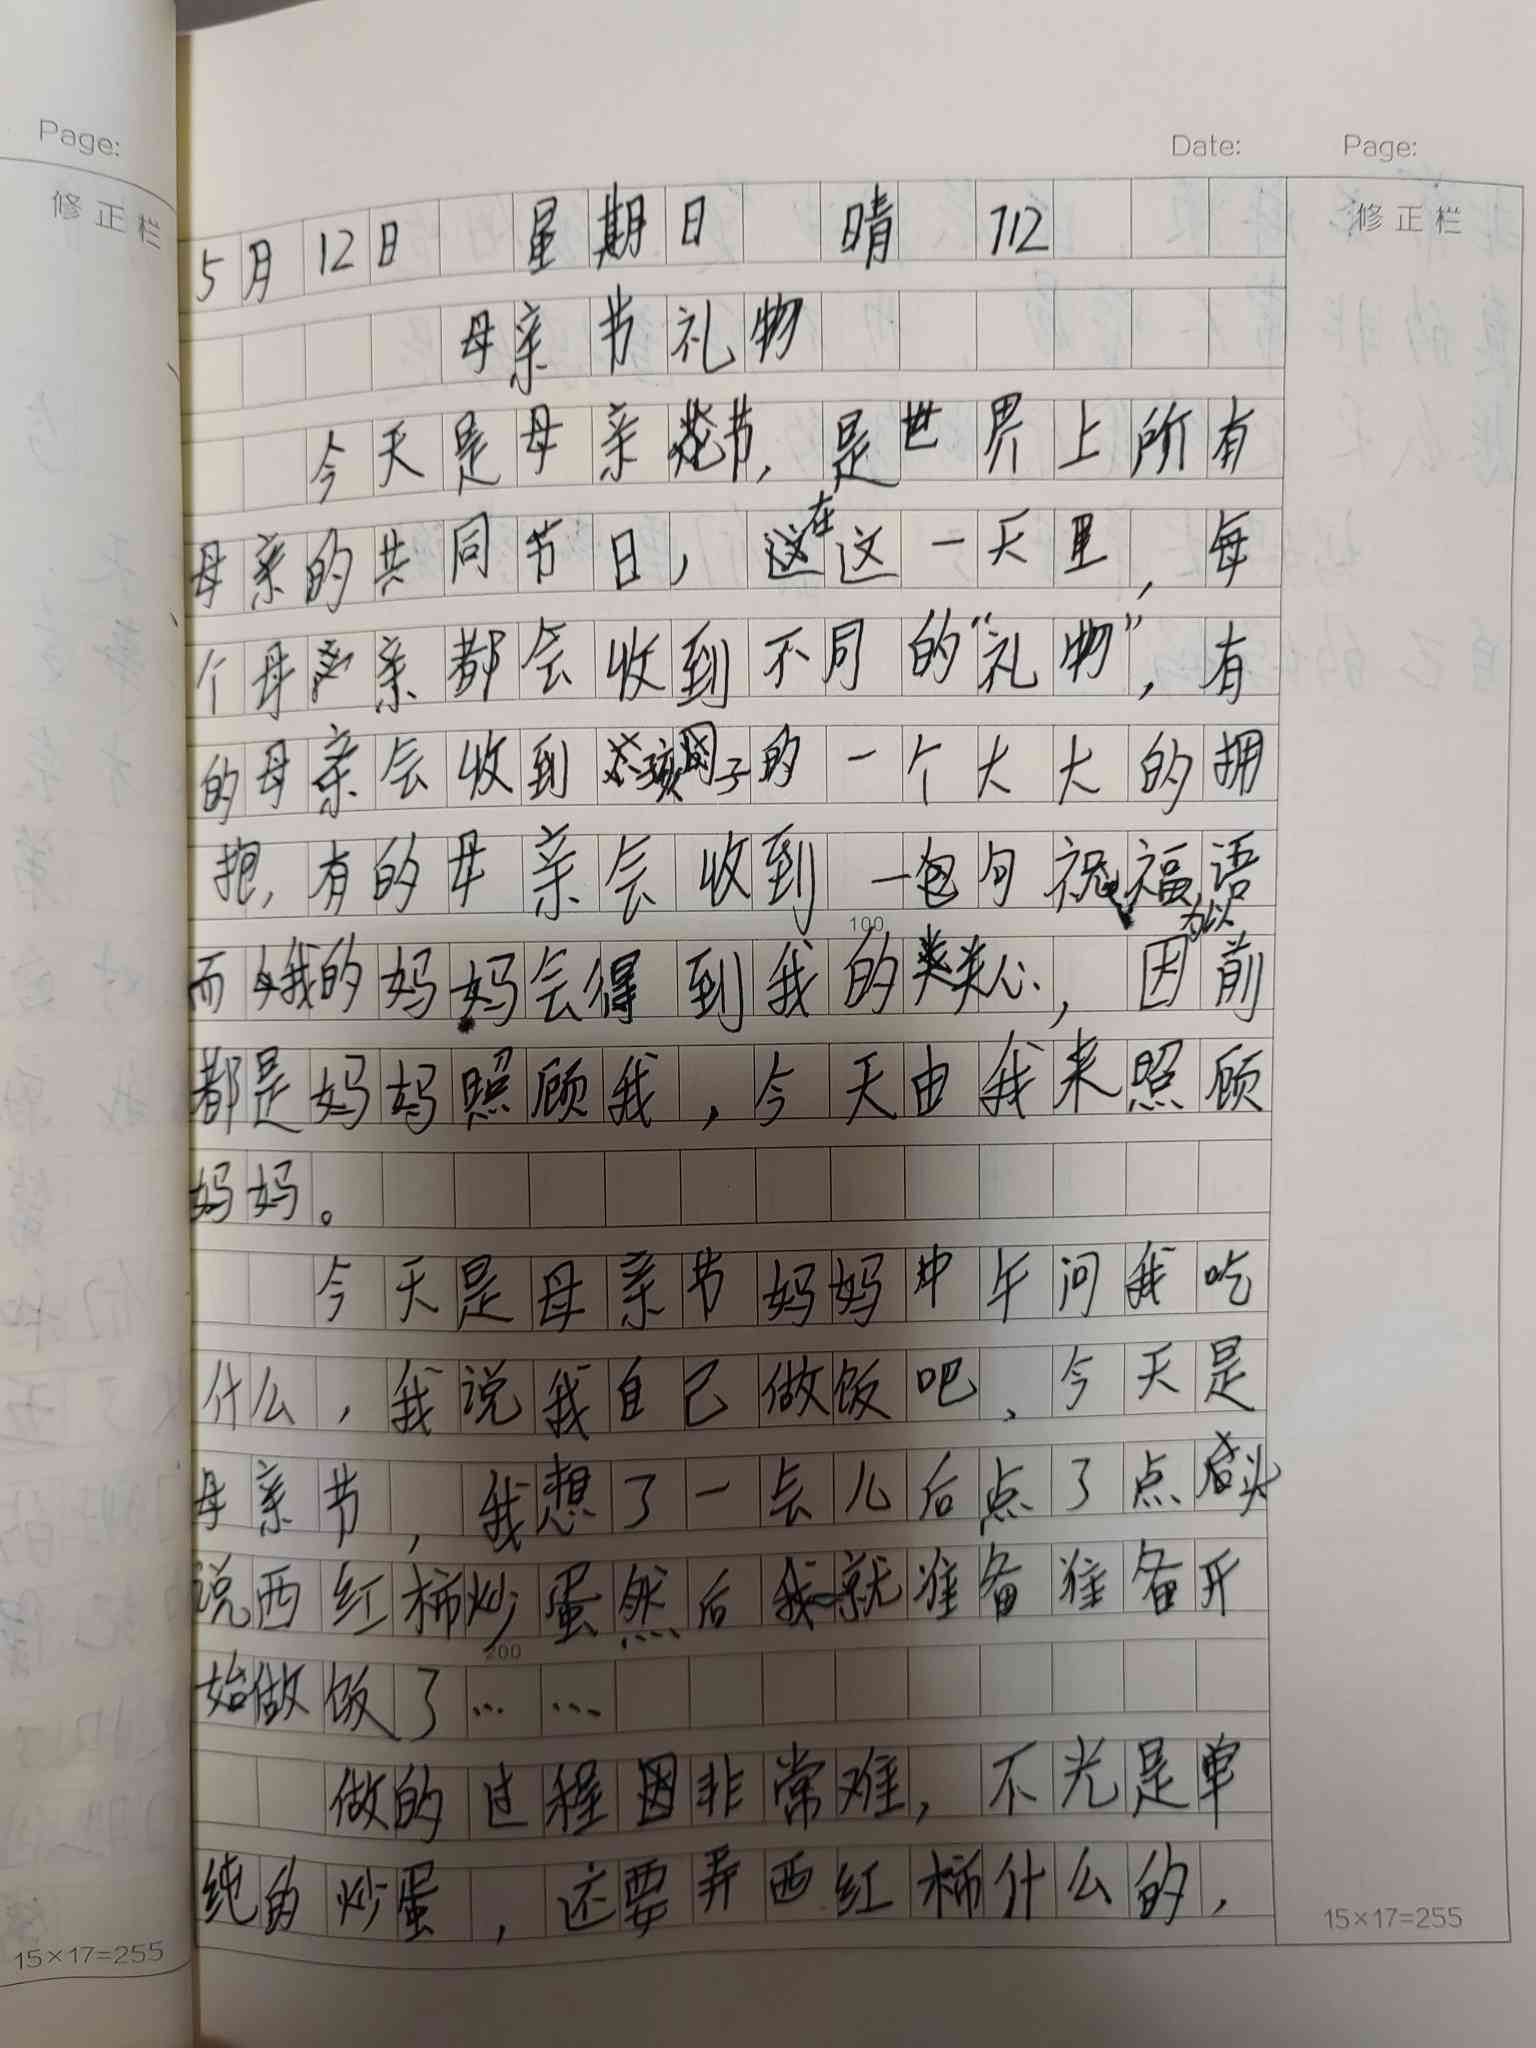 Page:
修正栏
Date: Page:
修正栏
5月12日 星期日 晴 712
母亲节礼物
今天是母亲节,是世界上所有
母亲的共同节日,在这一天里,每
个母亲都会收到不同的“礼物”,有
的母亲会收到孩子的一个大大的拥
抱,有的母亲会收到一句祝福语
而我的妈妈会得到我的关心,因为以前
都是妈妈照顾我,今天由我来照顾
妈妈。
今天是母亲节妈妈中午问我吃
什么,我说我自己做饭吧、今天是
母亲节,我想了一会儿后点了点头
说西红柿炒蛋然后我就准备准备开
始做饭了……
做的过程非常难,不光是单
纯的炒蛋,还要弄西红柿什么的,
100
200
15×17=255
15×17=255